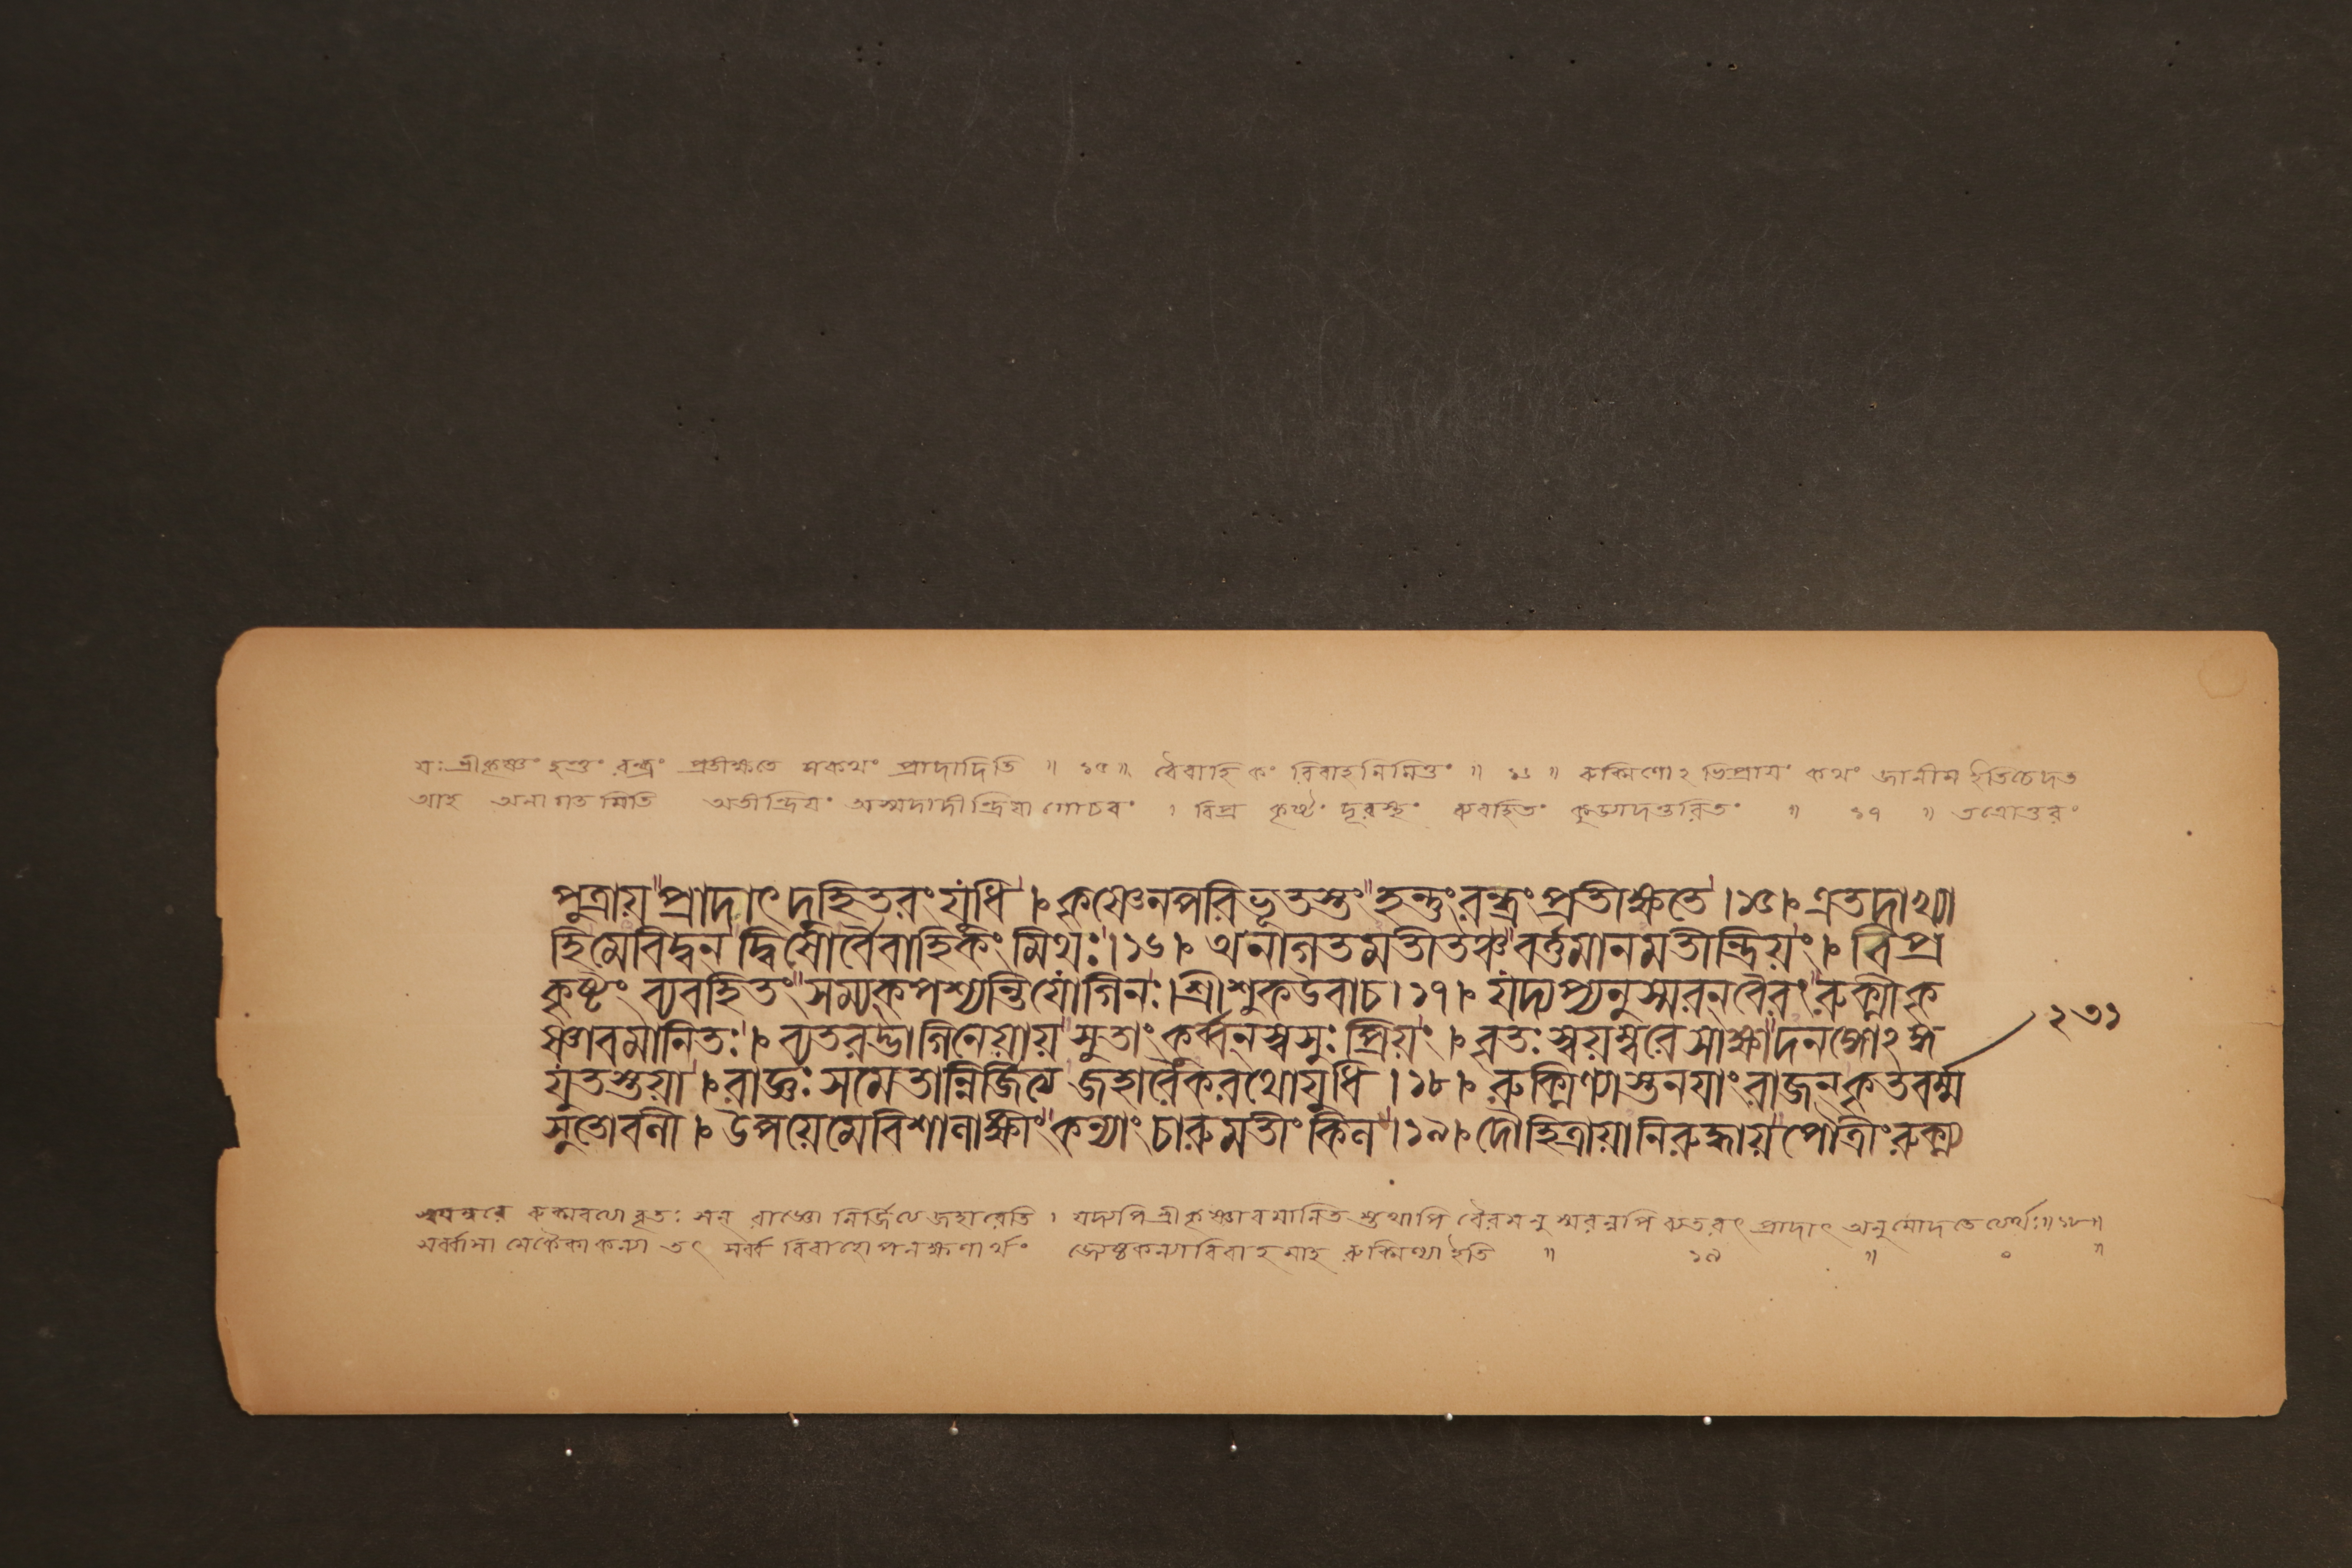 যঃ শ্রীকৃষ্ণং হন্তুং রন্ধ্রং প্রতীক্ষতে স কথং প্রাদাদিতি ॥ ১৫ ॥ বৈবাহিকং বিবাহনিমিত্তং ॥ ১৬ ॥ রুক্মিণোঽভিপ্রায়ং কথং জানীম ইতি চেদত
আহ অনাগতমিতি অতীন্দ্রিয়ং অস্মদাদীন্দ্রিয়াগোচরং । বিপ্রকৃষ্টং দূরস্থং ব্যবহিতং কুড্যাদ্যন্তরিতং ॥ ১৭ ॥ তত্রোত্তরং
পুত্রায় প্রাদাৎ দুহিতরং যুধি । কৃষ্ণেনপরিভূতস্তং হন্তুং রন্ধ্রং প্রতীক্ষতে । ১৫ । এতদাখ্যা
হি মে বিদ্বন দ্বিষোর্বৈবাহিকং মিথঃ । ১৬ । অনাগতমতীতঞ্চ বর্ত্তমানমতীন্দ্রিয়ং । বিপ্র
কৃষ্টং ব্যবহিতং সম্যক্ পশ্যন্তি যোগিনঃ । শ্রীশুক উবাচ । ১৭ । যদ্যপ্যনুস্মরন্ বৈরং রুক্মী কৃ
ষ্ণাবমানিতঃ । ব্যতরদ্ভাগিনেয়ায় সুতাং কর্ব্বন স্বসুঃ প্রিয়ং । বৃতঃ স্বয়ম্বরে সাক্ষাদনঙ্গোঽঙ্গ ২৩১
যুতস্তয়া । রাজ্ঞঃ সমেতান্নির্জিত্য জহারৈকরথো যুধি । ১৮ । রুক্মিণ্যাস্তনয়াং রাজন্ কৃতবর্ম্ম
সুতো বলী । উপয়েমে বিশালাক্ষীং কন্যাং চারুমতীং কিল । ১৯ । দৌহিত্রায়ানিরুদ্ধায় পৌত্রীং রুক্ম্য
স্বয়ম্বরে রুক্মবত্যা বৃতঃ সন্ রাজ্ঞো নির্জিত্য জহারেতি । যদ্যপি শ্রীকৃষ্ণাবমানিত স্তথাপি বৈরমনুস্মরন্নপি ব্যতরৎ প্রাদাৎ অনুমোদতেত্যর্থঃ ॥ ১৮ ॥
সর্ব্বাসামেকৈকা কন্যা তৎ সর্ব্ব বিবাহোপলক্ষণার্থং জ্যেষ্ঠকন্যাবিবাহমাহ রুক্মিণ্যা ইতি ॥ ১৯ ॥ ০ ॥